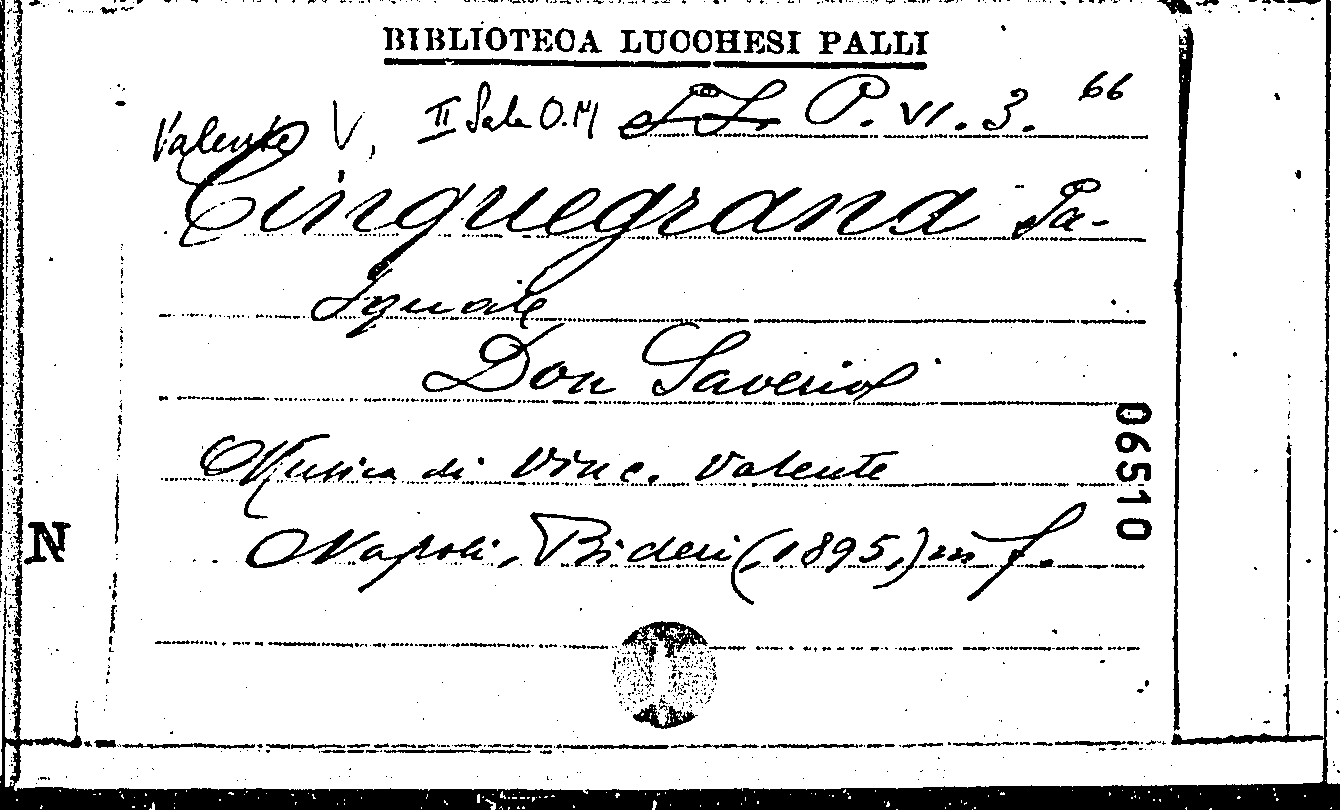 BIBLIOTECA LUCCHESI PALLI
Valente V, II Sala O.M P. VI. 3. 66
Cinquegrana Pa-
squale
Don Saverio
Musica di Vinc. Valente
Napoli, Bideri (1895,) in f.
06510
N